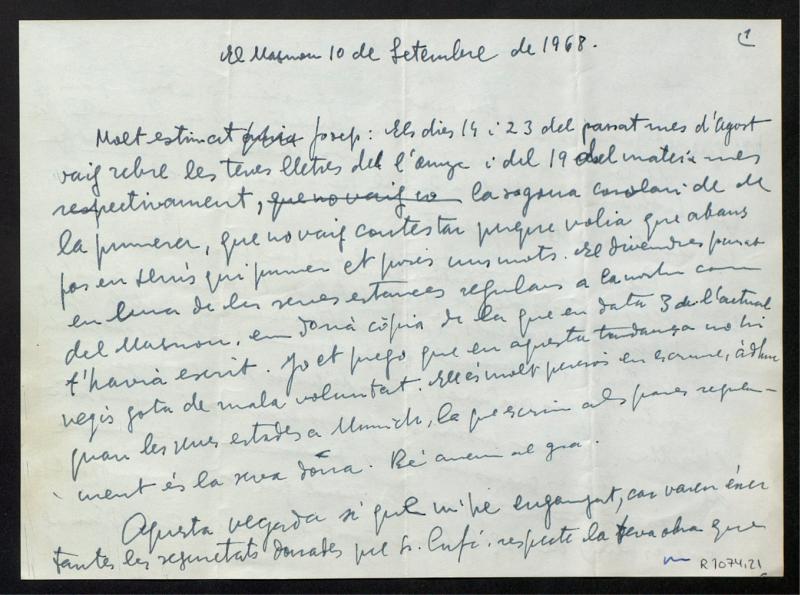 1
El Masnou 10 de Setembre de 1968.
Molt estimat Josep: Els dies 14 i 23 del passat mes d'Agost
vaig rebre les teves lletres del l'onze i del 19 del mateix mes
respectivament, que no vaig co la segona corolari de de
la primera, que no vaig contestar perque volia que abans
fos en qui primer et posés uns mots. El divendres passat
en una de les seves estances regulars a ca nostra com
del Masnou, em donà còpia de la que en data 3 de l'actual
t'havia escrit. Jo et prego que en aquesta tardança no hi
vegis gota de mala voluntat. Ell és molt peresós en escriure, àdhuc
quan les seves estades a Munich, la que escrivia als pares regular-
ment és la seva dona. Bé anem al gra.
Aquesta vegada si que m'he enganyat, car varen ésser
tantes les seguretats donades pel Sr. Cufí. respecte la teva obra que
R.1074.21